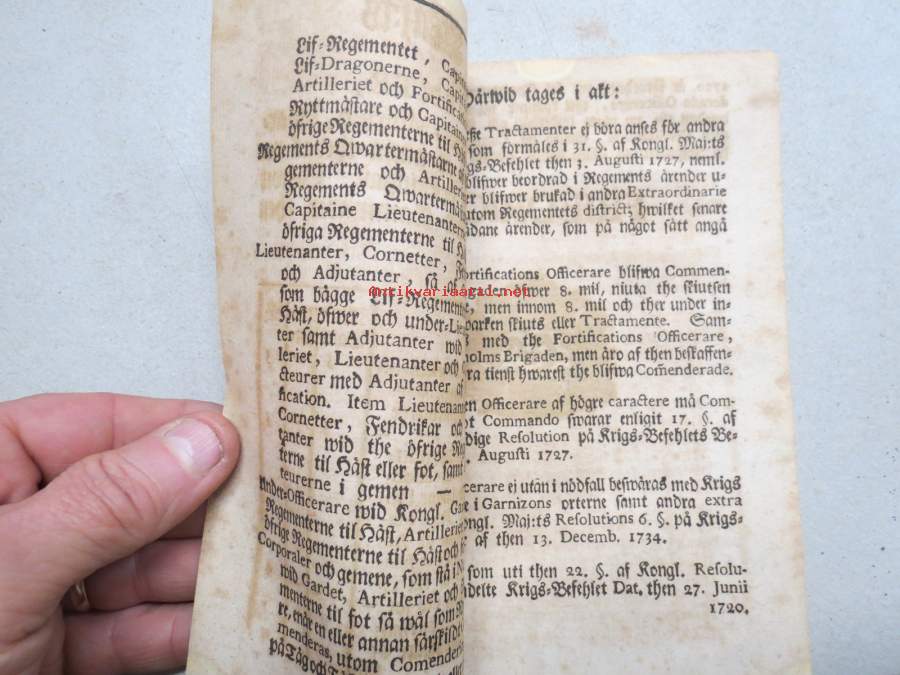 Lif-Regementet, Capit
Lif-Dragonerne, Capi
Artilleriet och Fortific
Ryttmästare och Capitain
öfrige Regementerne til Hä
Regements Qwartermästarne
gementerne och Artiller
Regements Qwartermä
Capitaine Lieutenanter
öfriga Regementerne til H
Lieutenanter, Cornetter, F
och Adjutanter, så af
som bägge Lif-Regement
Häst, öfwer och under-Lie
ter samt Adjutanter wid
leriet, Lieutenanter och
cteurer med Adjutanter af
fication. Item Lieutenan
Cornetter, Fendrikar och
tanter wid the öfrige Re
terne til Häst eller fot, samt
teurerne i gemen —
Under-Officerare wid Kongl. Ga
Regementerne til Häst, Artilleriet
öfrige Regementerne til Häst och
Corporaler och gemene, som stå i N
wid Gardet, Artilleriet och
menterne til fot så wäl som
re, enär en eller annan särskildt
menderas, utom Comender
på Tåg och
Härwid tages i akt:
ste Tractamenter ej böra anses för andra
som förmäles i 31. §. af Kongl. Maj:ts
gs-Befehlet then 3. Augusti 1727, neml.
blifwer beordrad i Regements ärender u-
er blifwer brukad i andra Extraordinarie
utom Regementets district; hwilket senare
ådane ärender, som på något sätt angå
ortifications Officerare blifwa Commen-
gaden öfwer 8. mil, niuta the skiutsen
e, men innom 8. mil och ther under in-
warken skiuts eller Tractamente. Sam-
s med the Fortifications Officerare,
holms Brigaden, men äro af then beskaffen-
ra tienst hwarest the blifwa Com̃enderade.
en Officerare af högre caractere må Com-
ot Commando swarar enligit 17. §. af
dige Resolution på Krigs-Befehlets Be-
. Augusti 1727.
cerare ej utan i nödfall beswäras med Krigs
e i Garnizons orterne samt andra extra
ongl. Maj:ts Resolutions 6. §. på Krigs-
af then 13. Decemb. 1734.
som uti then 22. §. af Kongl. Resolu-
delte Krigs-Befehlet Dat. then 27. Junii
1720.
Antikvariaatti.net